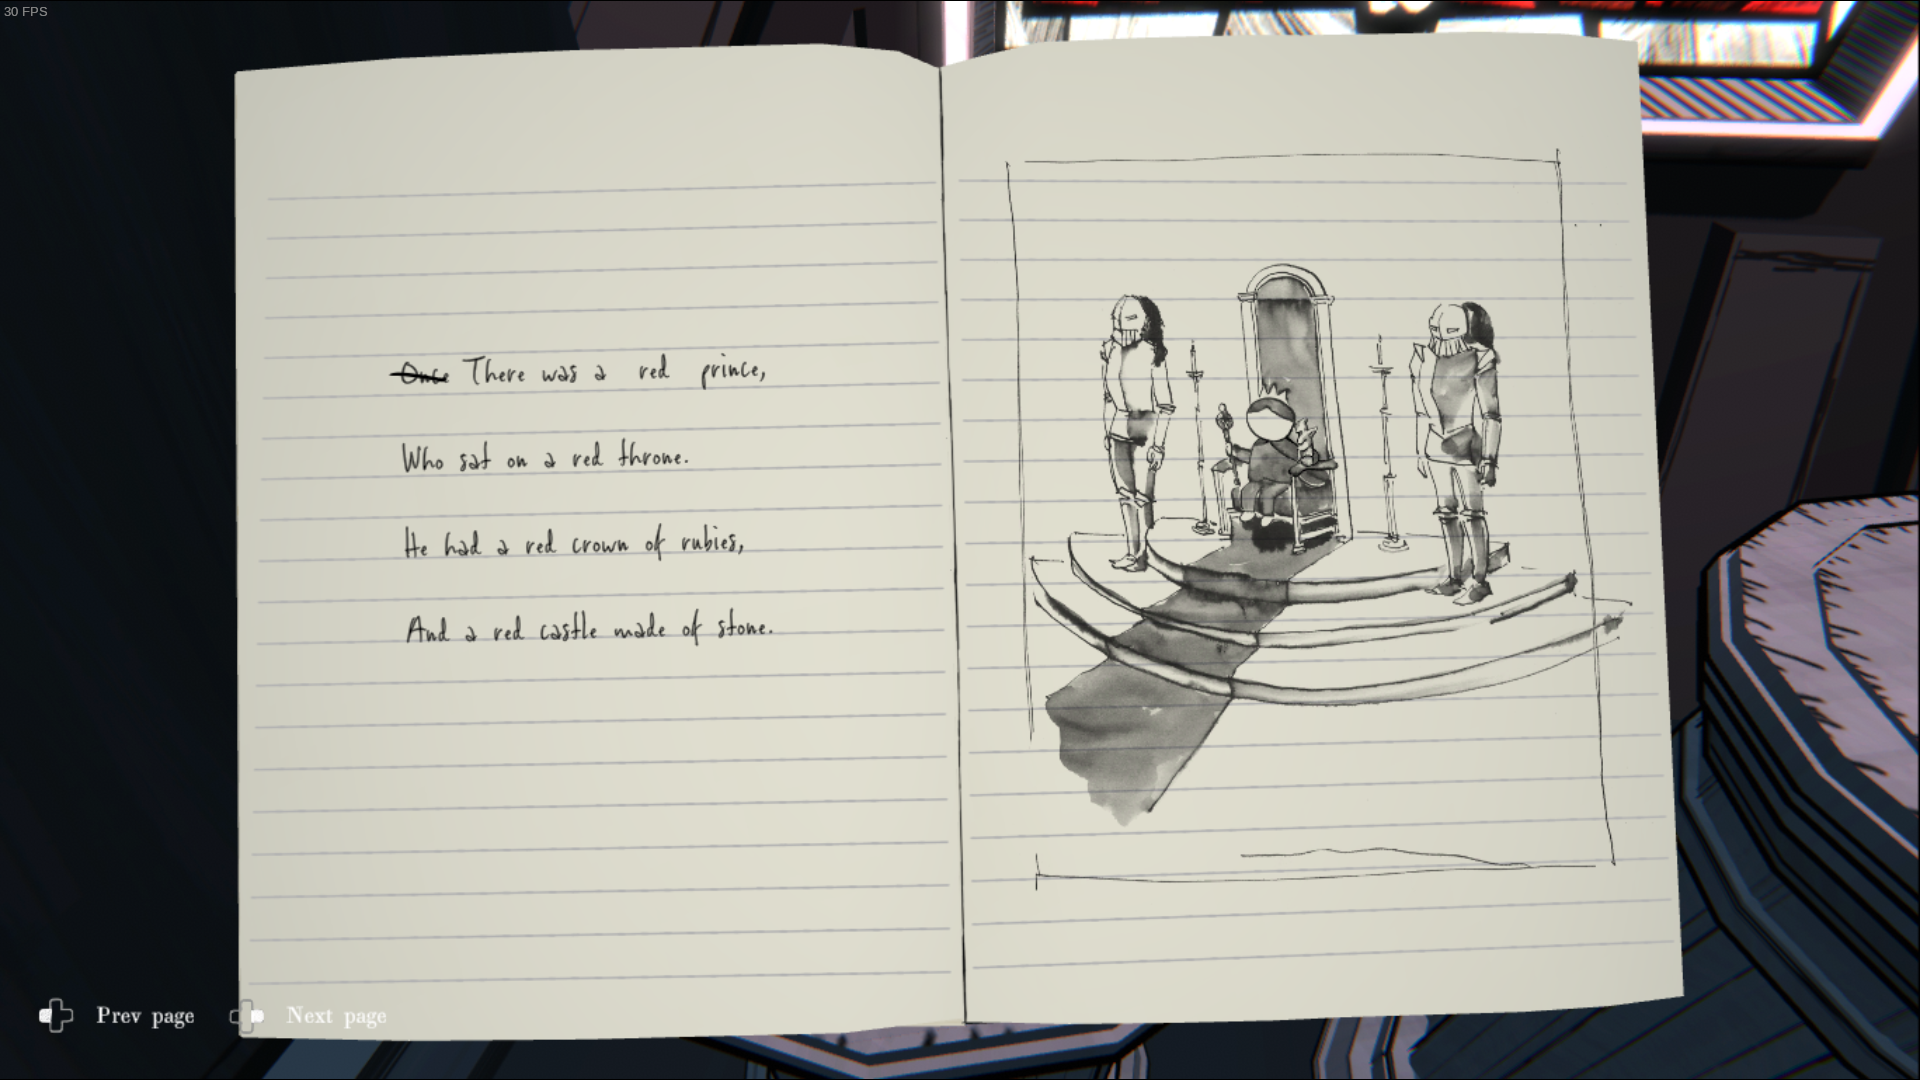 30 FPS
Once There was a red prince,
Who sat on a red throne.
He had a red crown of rubies,
And a red castle made of stone.
Prev page
Next page